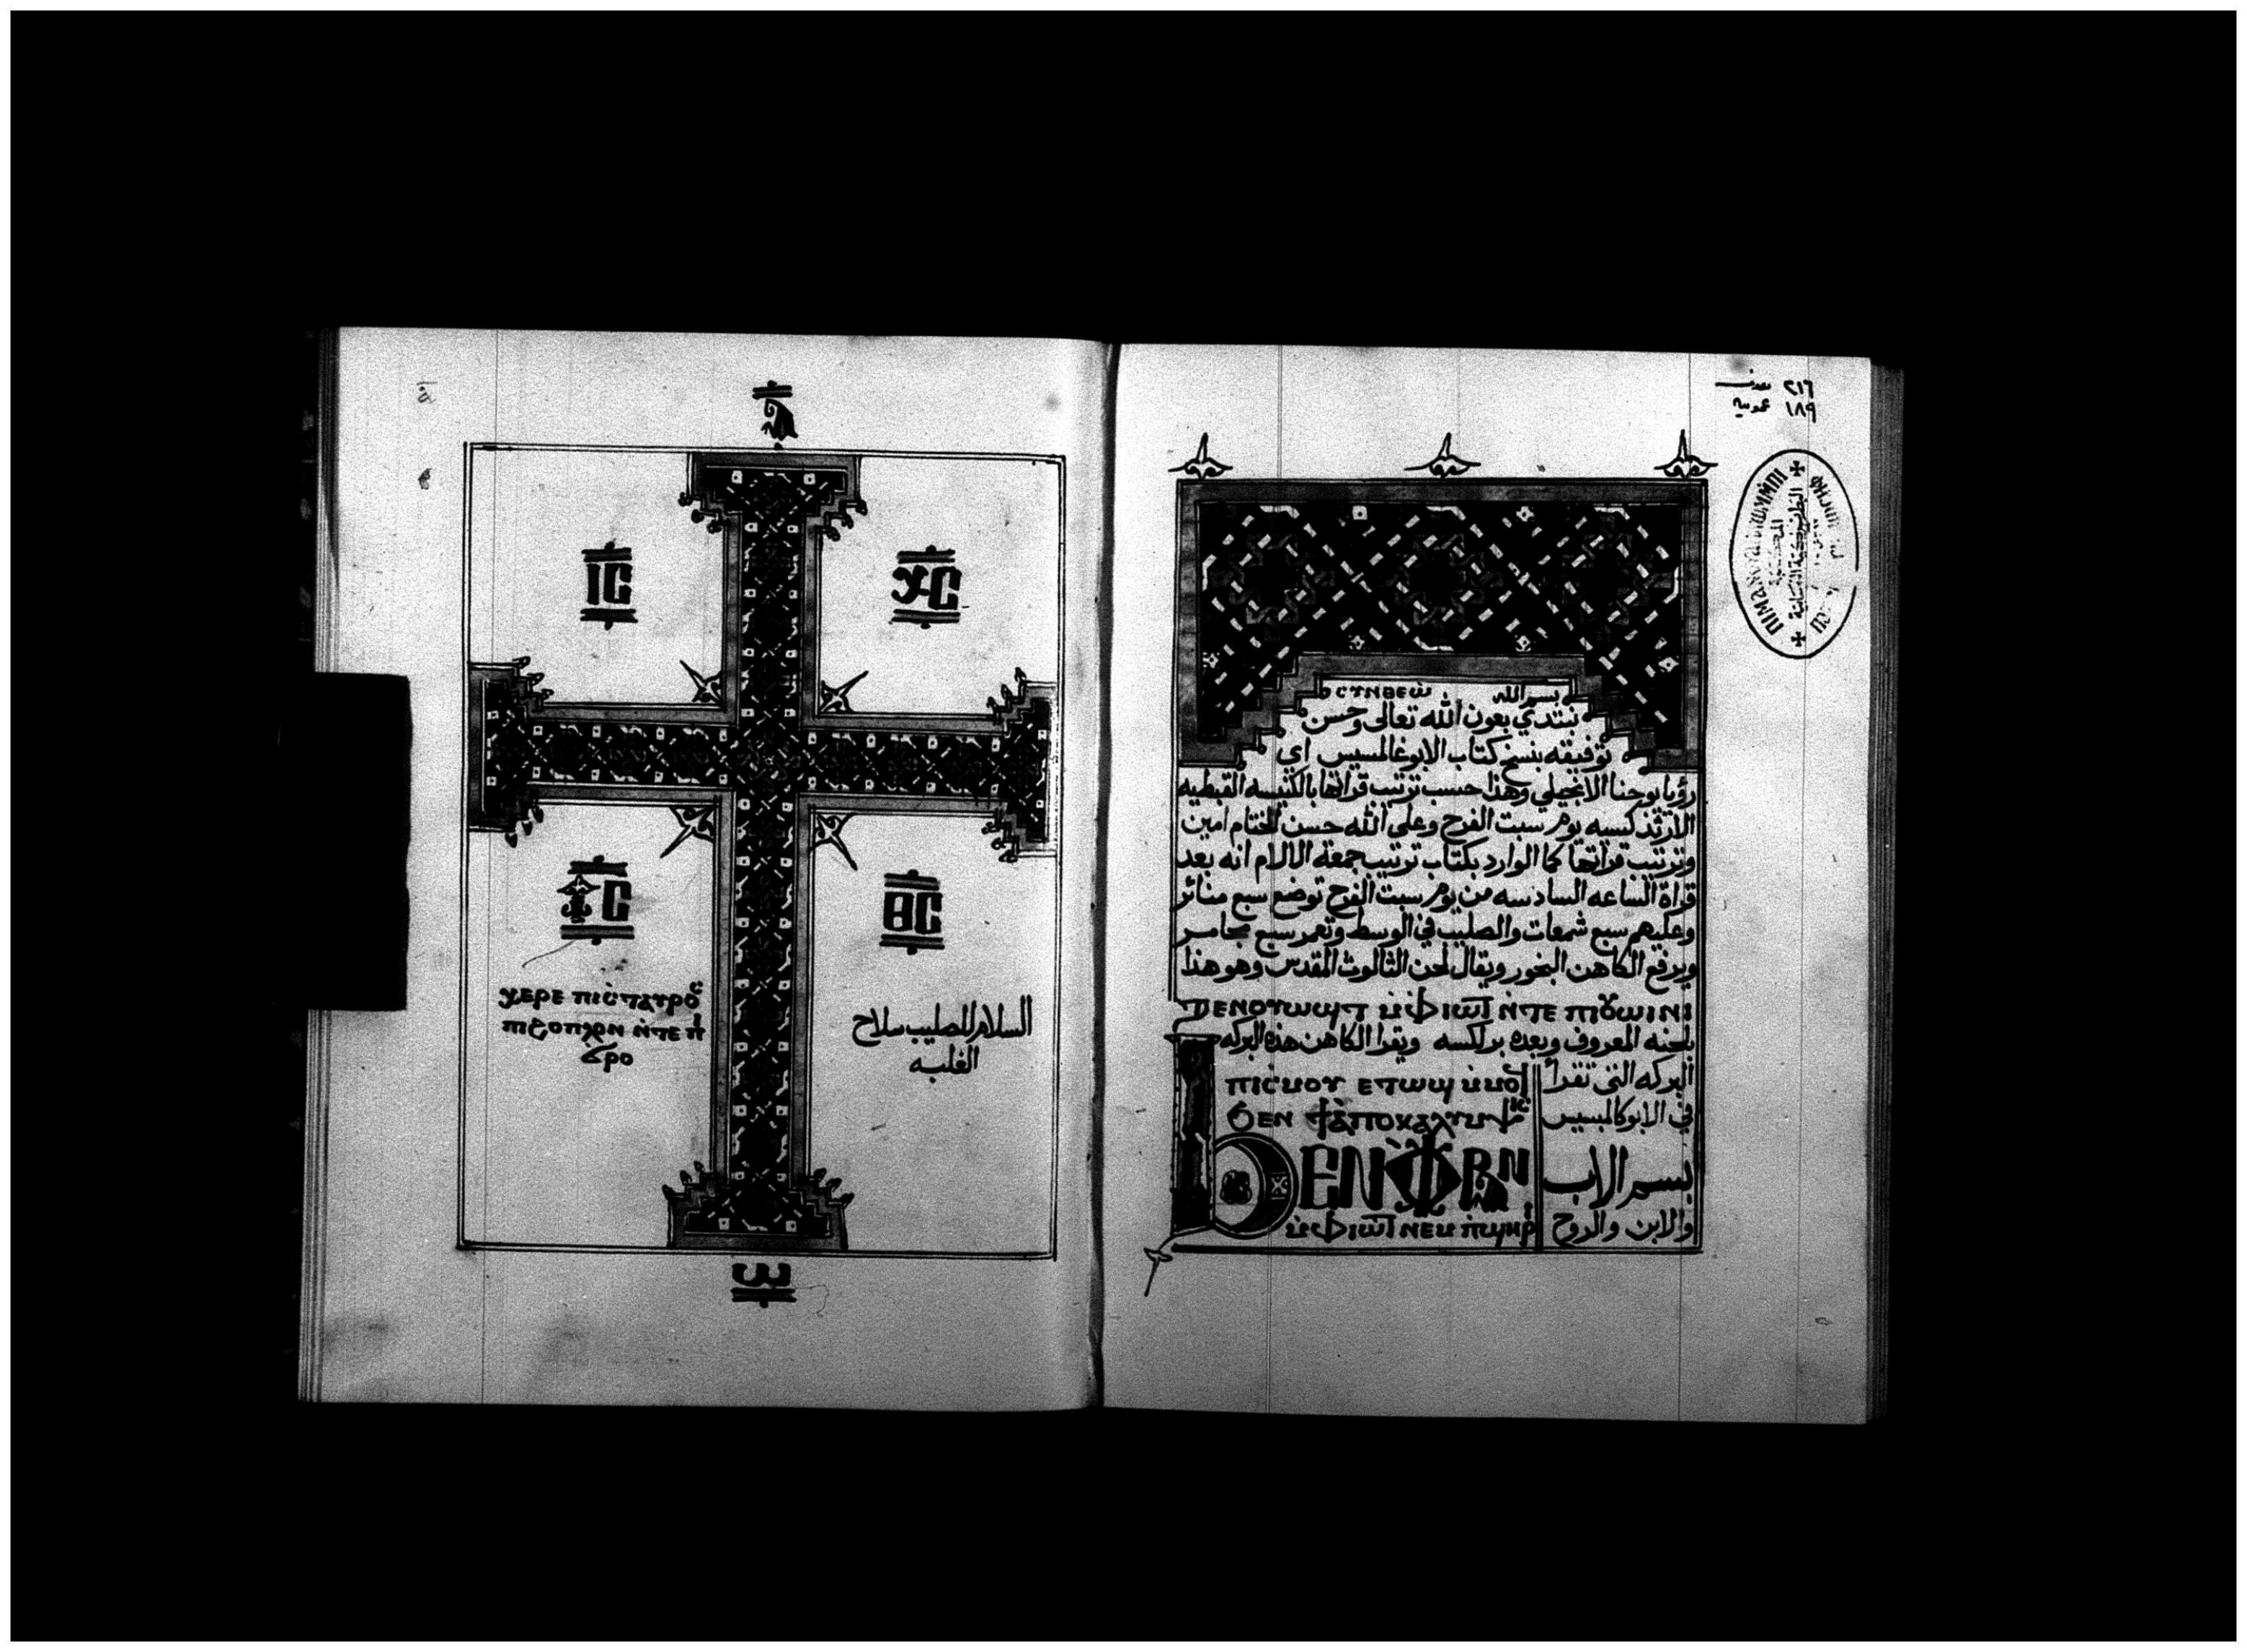 ⲓⲥ ⲭⲥ
ⲩⲥ ⲑⲥ
ⲭⲉⲣⲉ ⲡⲓⲥⲧⲁⲩⲣⲟⲥ
ⲡⲓϩⲟⲡⲗⲟⲛ ⲛ̀ⲧⲉ ⲡⲓ
ϭⲣⲟ
السلام للصليب سلاح
الغلبه
ⲱ
٢١٦
١٨٩ عمومية
ⲥⲩⲛⲑⲉⲱ بسم الله
نبتدي بعون الله تعالى وحسن
توفيقه بنسخ كتاب الابوغالمسيس اي
رؤيا يوحنا الانجيلي وهذا حسب ترتيب قراتها بالكنيسه القبطيه
الارثذكسيه يوم سبت الفرح وعلى الله حسن الختام امين
وترتيب قراتها كما الوارد بكتاب ترتيب جمعة الالام انه بعد
قراة الساعه السادسه من يوم سبت الفرح توضع سبع مناير
وعليهم سبع شمعات والصليب في الوسط وتعمر سبع مجامر
ويرفع الكاهن البخور ويقال لحن الثالوث المقدس وهو هذا
ⲧⲉⲛⲟⲩⲱϣⲧ ⲙ̀ⲫⲓⲱⲧ ⲛ̀ⲧⲉ ⲡⲓⲟⲩⲱⲓⲛⲓ
بلحنه المعروف وبعده برلكسه ويقرا الكاهن هذه البركه
ⲡⲓⲥⲙⲟⲩ ⲉⲧⲱϣ ⲙ̀ⲙⲟϥ البركه التى تقرا
ϧⲉⲛ ϯⲁⲡⲟⲕⲁⲗⲩⲙⲯⲓⲥ في الابوكالمبسيس
ϧⲉⲛ ⲫⲣⲁⲛ بسم الاب
ⲙ̀ⲫⲓⲱⲧ ⲛⲉⲙ ⲡ̀ϣⲏⲣⲓ والابن والروح